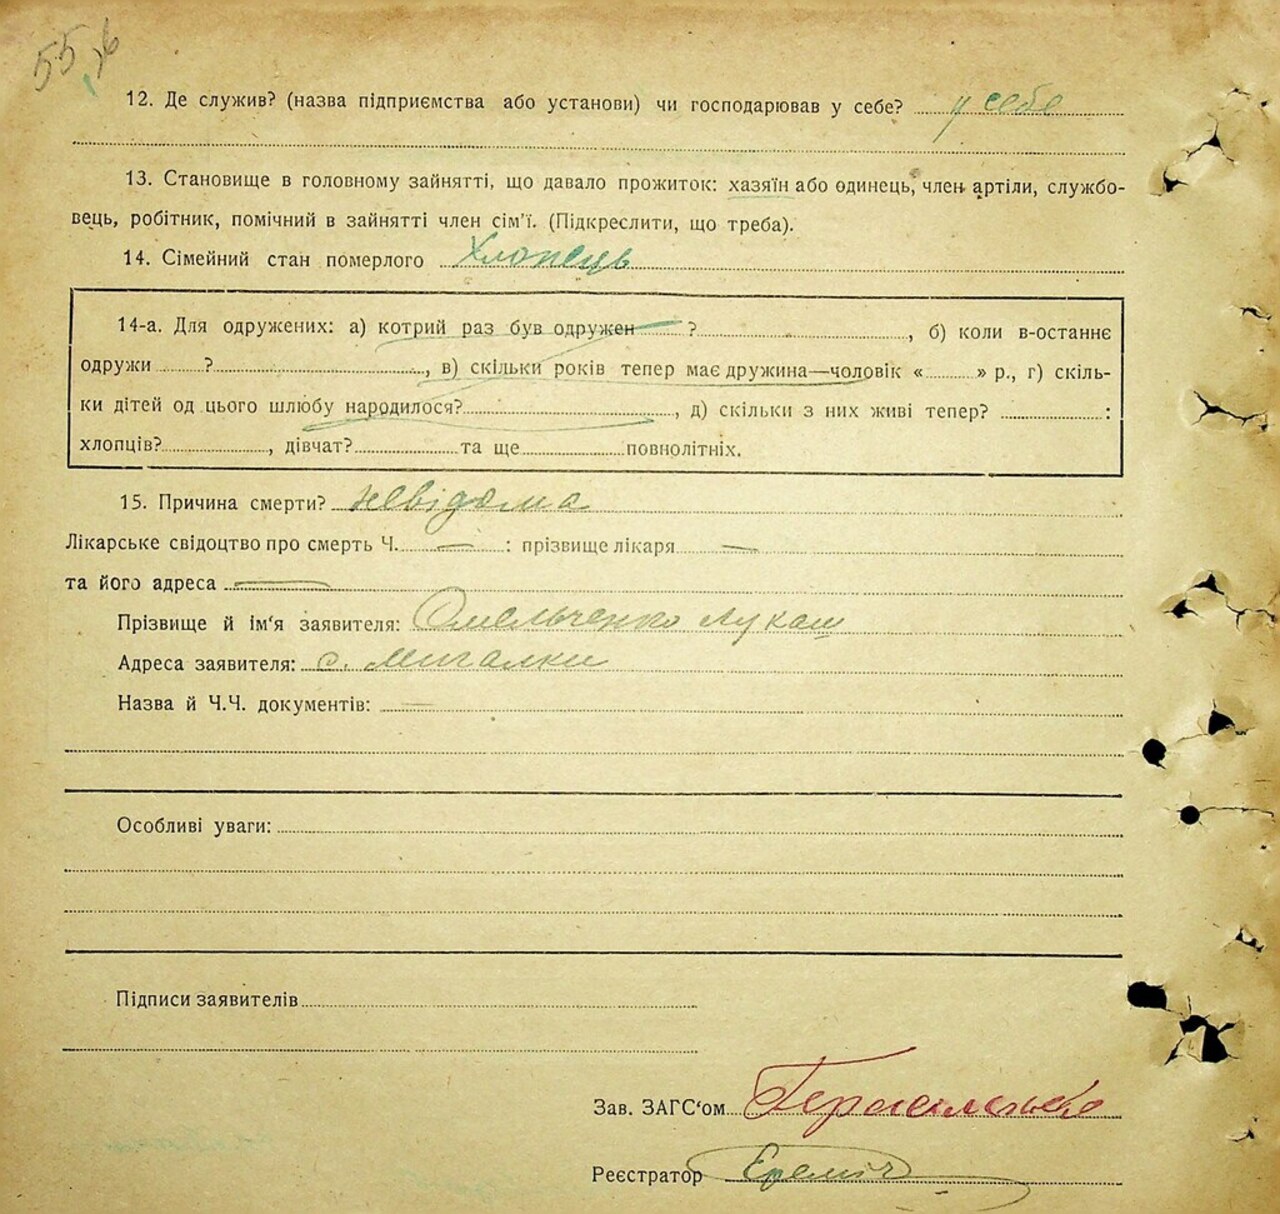 55
12. Де служив? (назва підприємства або установи) чи господарював у себе? у себе
13. Становище в головному зайнятті, що давало прожиток: хазяїн або одинець, член артіли, службо-
вець, робітник, помічний в зайнятті член сім'ї. (Підкреслити, що треба).
14. Сімейний стан померлого Хлопець
14-а. Для одружених: а) котрий раз був одружен ?, б) коли в-останнє
одружи ?, в) скільки років тепер має дружина—чоловік « » р., г) скіль-
ки дітей од цього шлюбу народилося?, д) скільки з них живі тепер? :
хлопців?, дівчат? та ще повнолітніх.
15. Причина смерти? невідома
Лікарське свідоцтво про смерть Ч. — : прізвище лікаря —
та його адреса —
Прізвище й ім'я заявителя: Омельченко Лукаш
Адреса заявителя: с. Мигалки
Назва й Ч.Ч. документів: —
Особливі уваги:
Підписи заявителів
Зав. ЗАГС'ом Герасименко
Реєстратор Єреміч